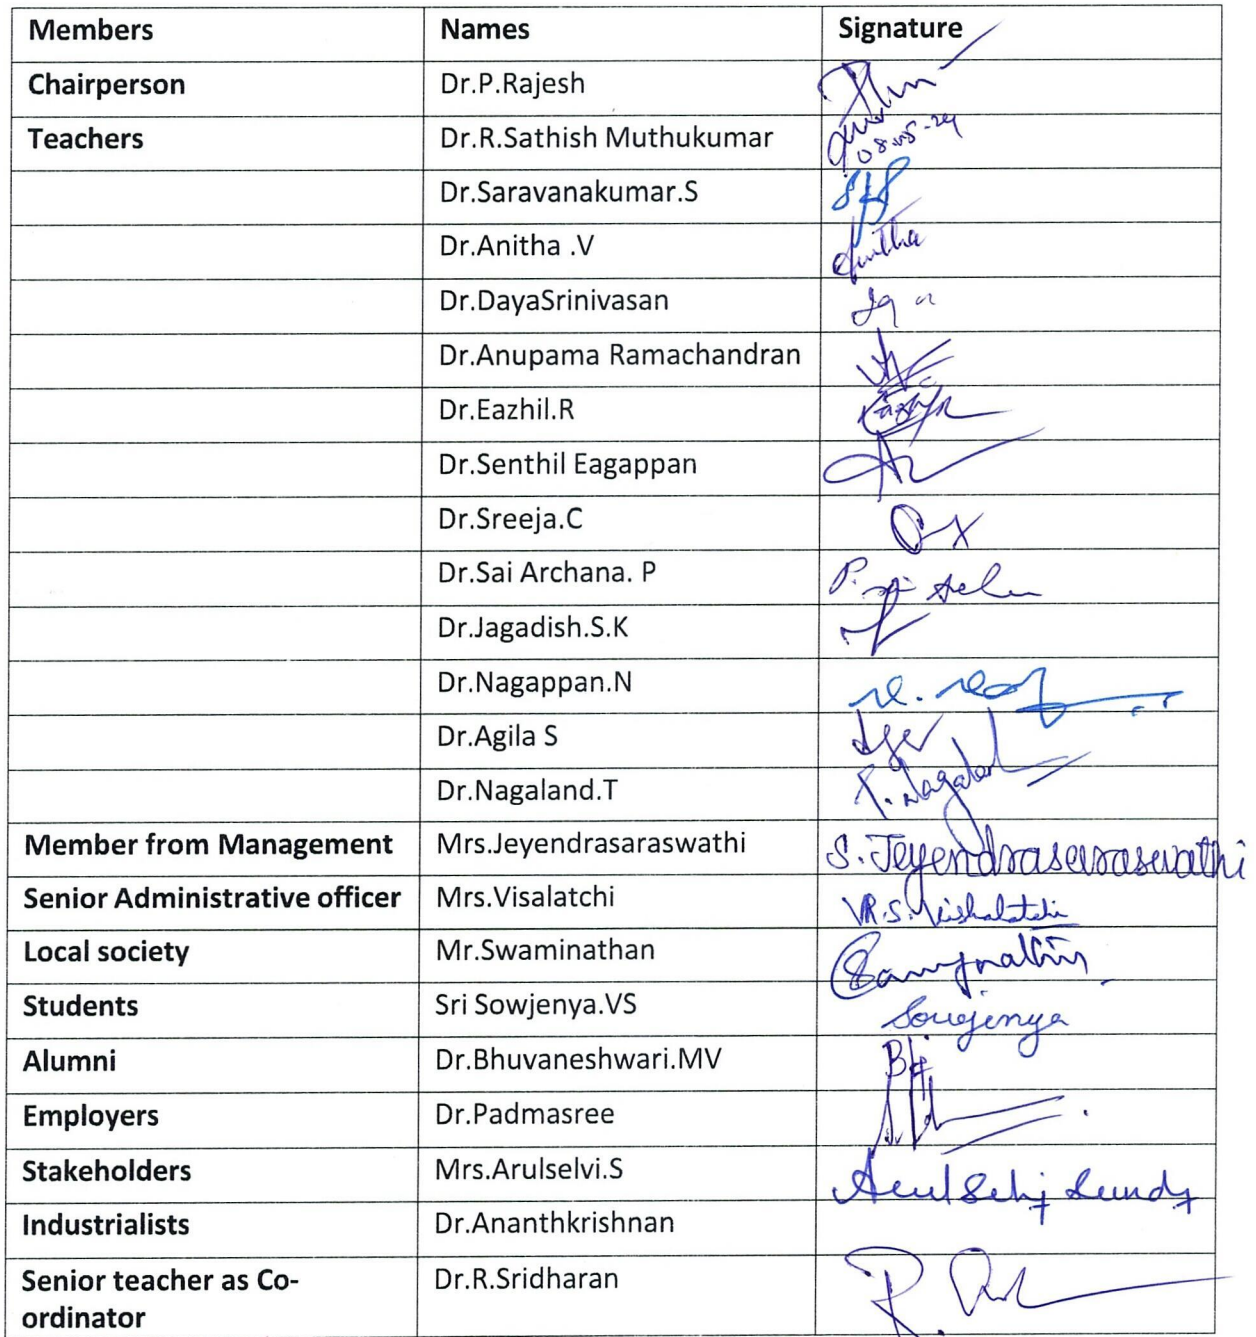 Members Names Signature
Chairperson Dr.P.Rajesh
Teachers Dr.R.Sathish Muthukumar
Dr.Saravanakumar.S
Dr.Anitha .V Anitha
Dr.DayaSrinivasan
Dr.Anupama Ramachandran
Dr.Eazhil.R
Dr.Senthil Eagappan
Dr.Sreeja.C
Dr.Sai Archana. P
Dr.Jagadish.S.K
Dr.Nagappan.N
Dr.Agila S
Dr.Nagaland.T
Member from Management Mrs.Jeyendrasaraswathi S. Jeyendrasaraswathi
Senior Administrative officer Mrs.Visalatchi
Local society Mr.Swaminathan
Students Sri Sowjenya.VS Sowjenya
Alumni Dr.Bhuvaneshwari.MV
Employers Dr.Padmasree
Stakeholders Mrs.Arulselvi.S
Industrialists Dr.Ananthkrishnan
Senior teacher as Co- Dr.R.Sridharan
ordinator